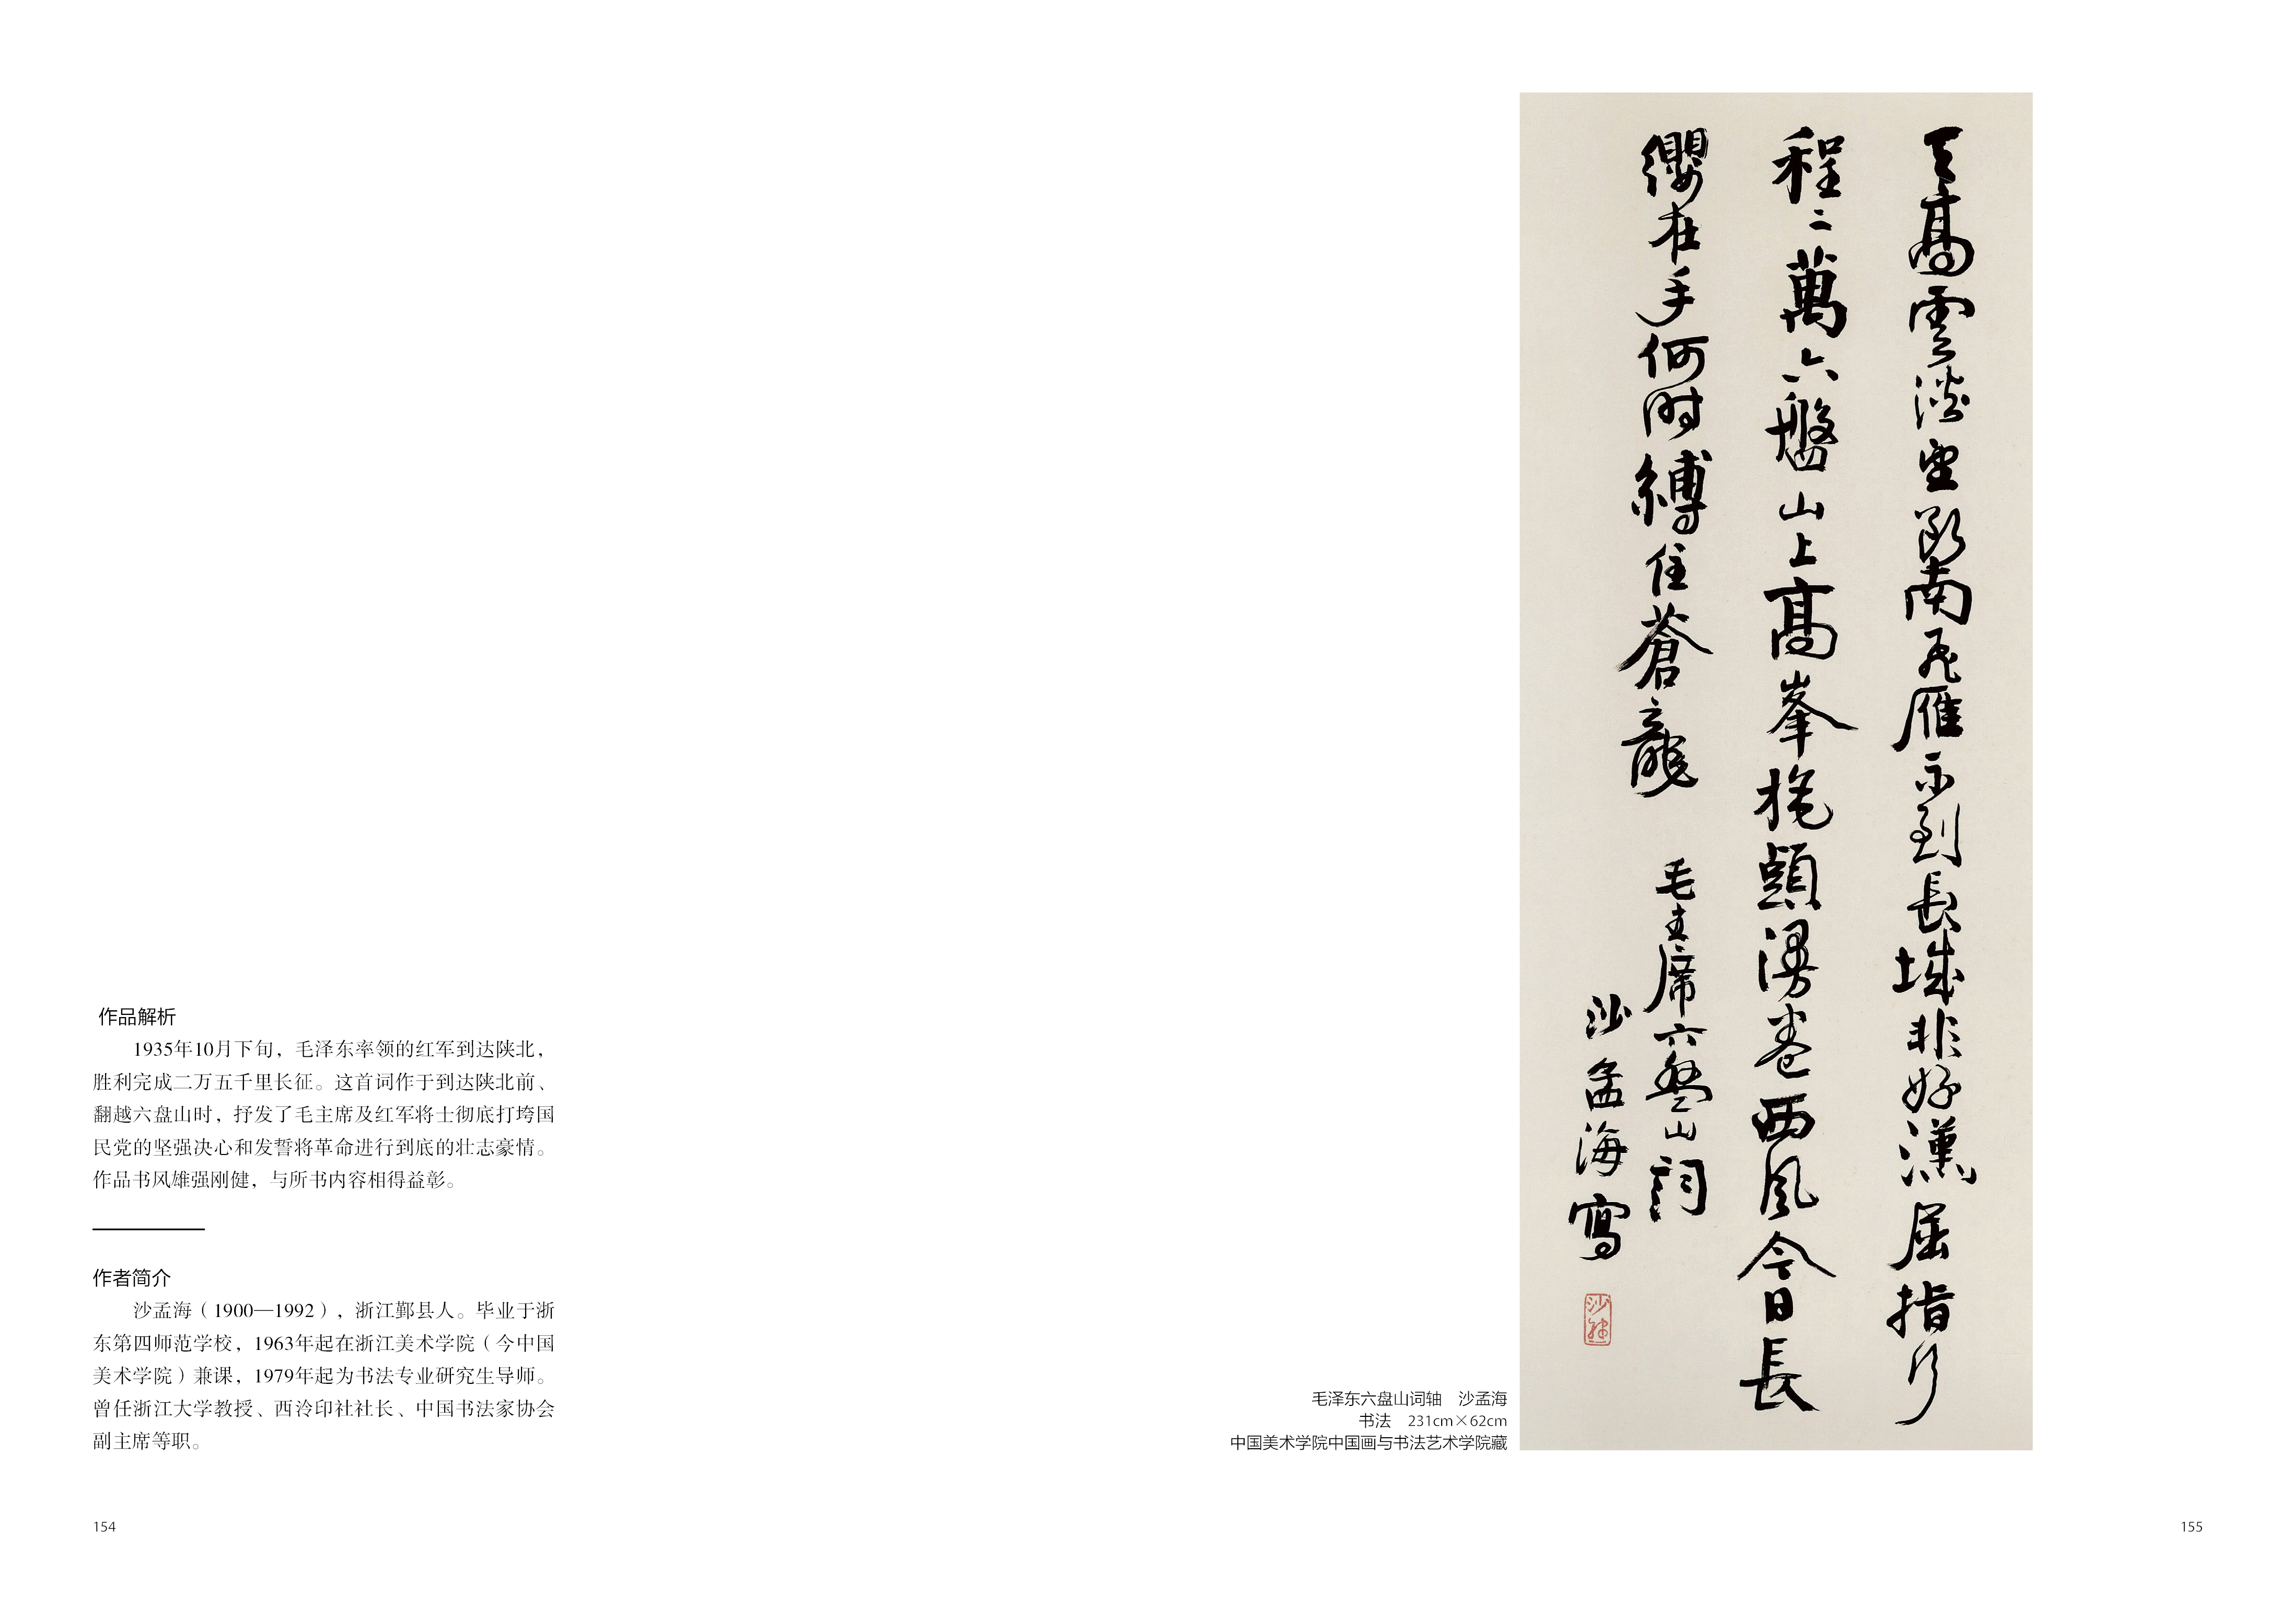 作品解析
1935年10月下旬，毛泽东率领的红军到达陕北，
胜利完成二万五千里长征。这首词作于到达陕北前、
翻越六盘山时，抒发了毛主席及红军将士彻底打垮国
民党的坚强决心和发誓将革命进行到底的壮志豪情。
作品书风雄强刚健，与所书内容相得益彰。
作者简介
沙孟海（1900—1992），浙江鄞县人。毕业于浙
东第四师范学校，1963年起在浙江美术学院（今中国
美术学院）兼课，1979年起为书法专业研究生导师。
曾任浙江大学教授、西泠印社社长、中国书法家协会
副主席等职。
154
天高雲淡望斷南飛雁不到長城非好漢屈指行
程二萬六盤山上高峯旄頭漫卷西風今日長
纓在手何时縛住蒼龍 毛主席六盤山詞
沙孟海寫
毛泽东六盘山词轴 沙孟海
书法 231cm×62cm
中国美术学院中国画与书法艺术学院藏
155